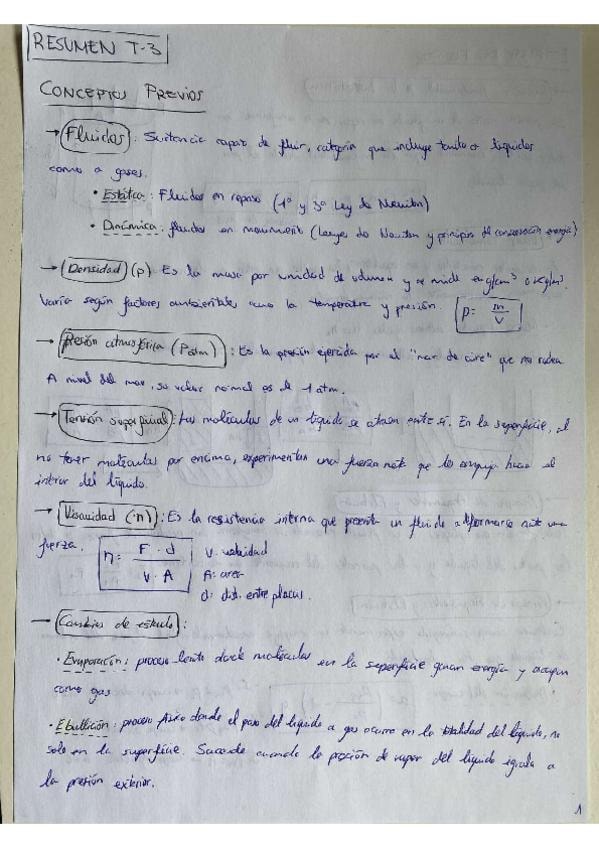 RESUMEN T-3
CONCEPTOS PREVIOS
→ Fluidos: Sustancia capaz de fluir, categoría que incluye tanto a líquidos
como a gases.
• Estática: Fluidos en reposo (1ª y 3ª Ley de Newton)
• Dinámica: fluidos en movimiento (Leyes de Newton y principios de conservación energía)
→ Densidad (ρ) Es la masa por unidad de volumen y se mide en g/cm³ o kg/m³.
Varía según factores ambientales como la temperatura y presión. ρ = m/V
→ Presión atmosférica (Patm): Es la presión ejercida por el "mar de aire" que nos rodea.
A nivel del mar, su valor normal es de 1 atm.
→ Tensión superficial: Las moléculas de un líquido se atraen entre sí. En la superficie, al
no tener moléculas por encima, experimentan una fuerza neta que las empuja hacia el
interior del líquido.
→ Viscosidad (η): Es la resistencia interna que presenta un fluido a deformarse ante una
fuerza. η = F · d / v · A v: velocidad
A: area
d: dist. entre placas.
→ Cambios de estado:
• Evaporación: proceso lento donde moléculas en la superficie ganan energía y escapan
como gas
• Ebullición: proceso físico donde el paso del líquido a gas ocurre en la totalidad del líquido, no
solo en la superficie. Sucede cuando la presión de vapor del líquido iguala a
la presión exterior.
1